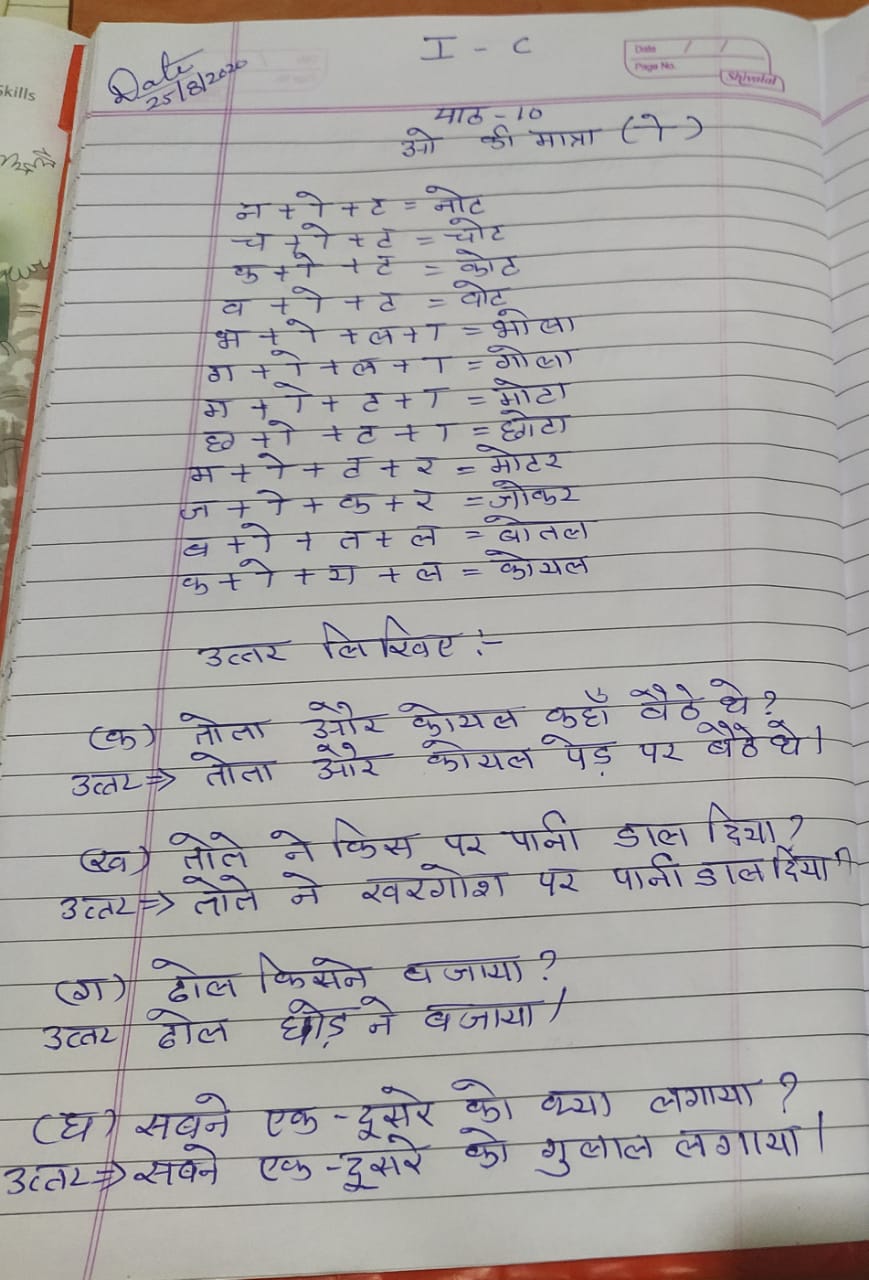 Skills
I - C
Date
25/8/2020
Date / /
Page No.
Shivalal
पाठ - 10
ओ की मात्रा (ो)
न + ो + ट = नोट
च + ो + ट = चोट
क + ो + ट = कोट
व + ो + ट = वोट
भ + ो + ल + ा = भोला
ग + ो + ल + ा = गोला
म + ो + ट + ा = मोटा
छ + ो + ट + ा = छोटा
म + ो + ट + र = मोटर
ज + ो + क + र = जोकर
ब + ो + त + ल = बोतल
क + ो + य + ल = कोयल
उत्तर लिखिए :-
(क) तोता और कोयल कहाँ बैठे थे?
उत्तर => तोता और कोयल पेड़ पर बैठे थे।
(ख) तोते ने किस पर पानी डाल दिया?
उत्तर => तोते ने खरगोश पर पानी डाल दिया।
(ग) ढोल किसने बजाया?
उत्तर ढोल घोड़े ने बजाया।
(घ) सबने एक-दूसरे को क्या लगाया?
उत्तर => सबने एक-दूसरे को गुलाल लगाया।